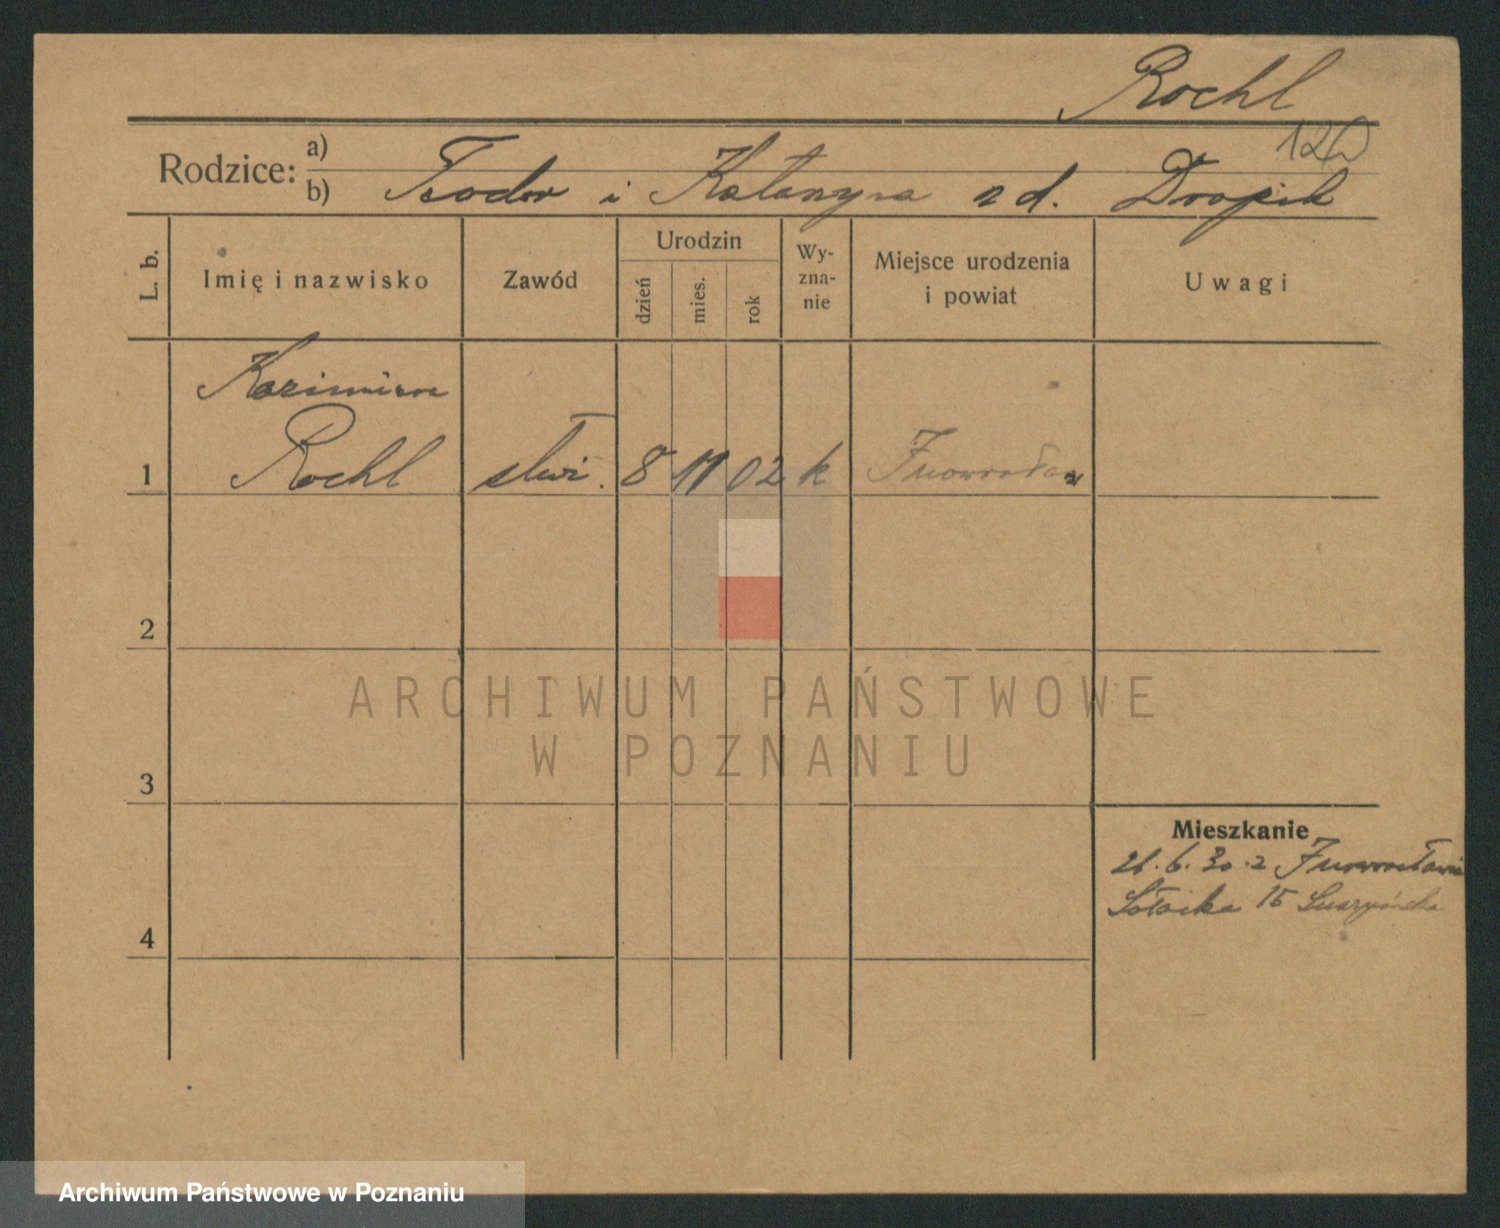 Rochl
Rodzice: a)
b) Teodor i Katarzyna z d.
L. b.
Imię i nazwisko
Zawód
Urodzin
dzień
mies.
rok
Wy-
zna-
nie
Miejsce urodzenia
i powiat
Uwagi
Kazimiera
1 Rochl 8 11 02 k Inowrocław
2
3
4
Mieszkanie
26.6.30 z Inowrocławia
Sołacka 15
ARCHIWUM PAŃSTWOWE
W POZNANIU
Archiwum Państwowe w Poznaniu